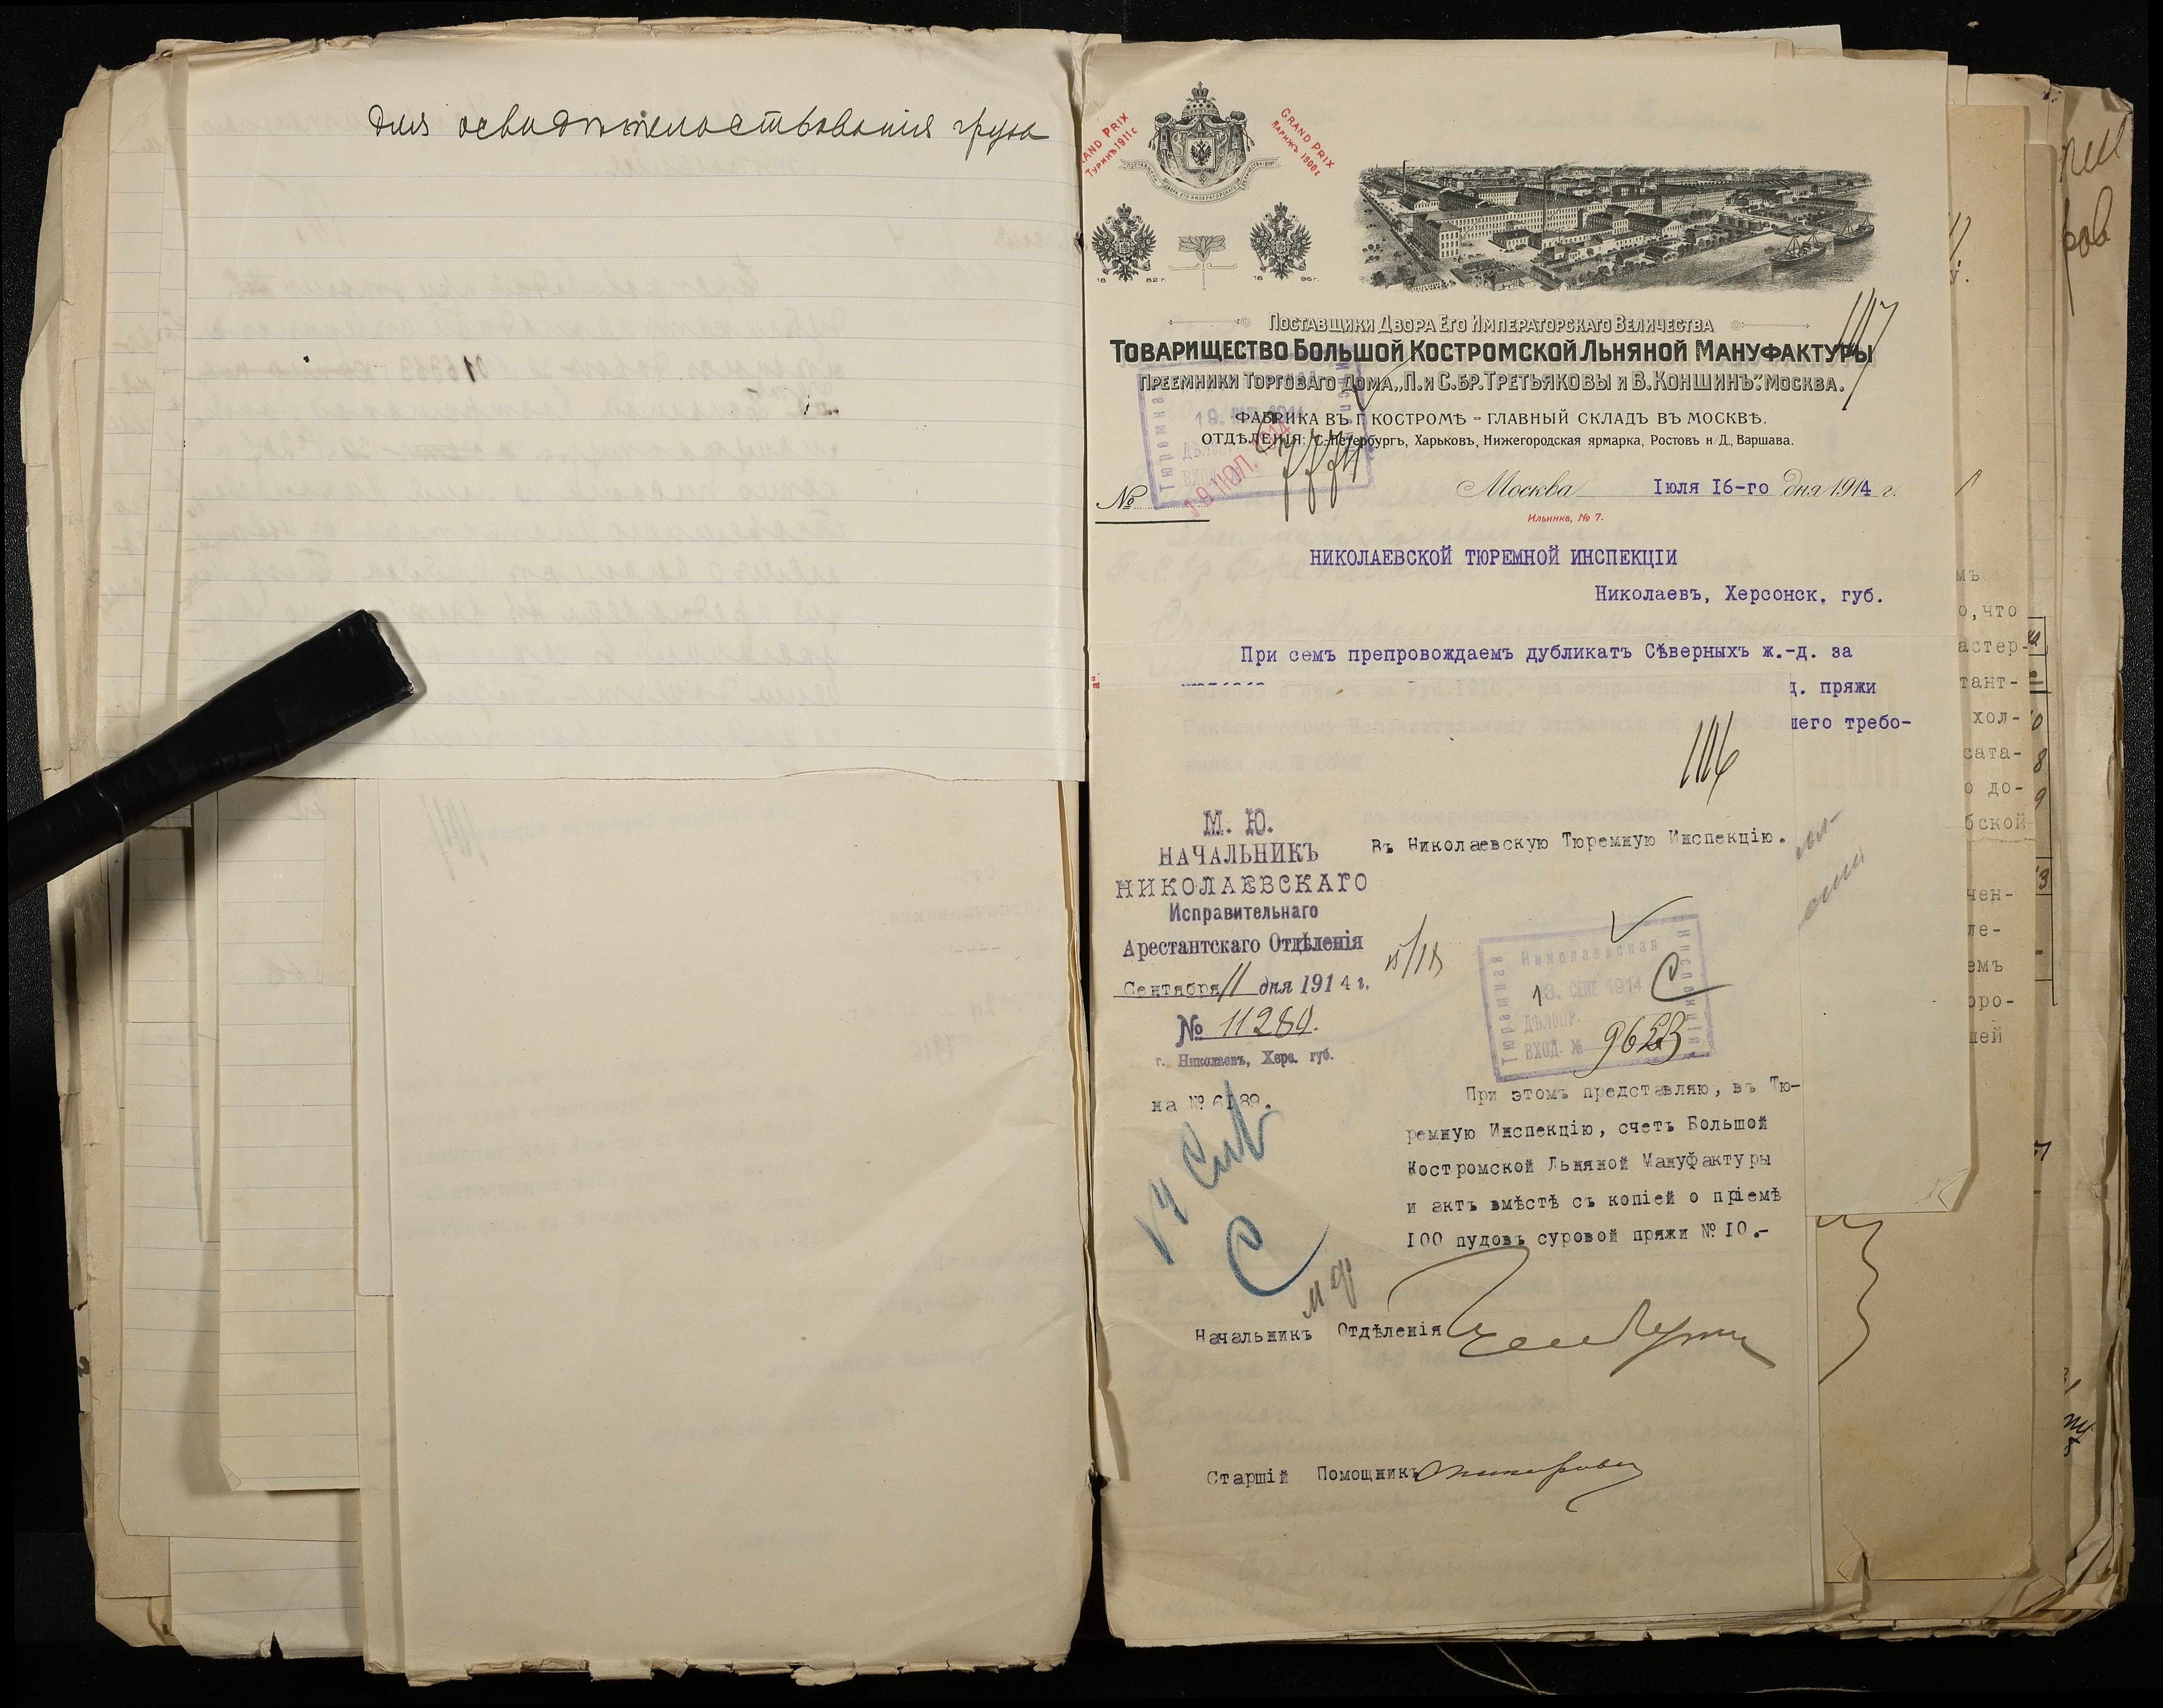 для освидѣтельствованія груза
GRAND PRIX
Туринъ 1911 г.
GRAND PRIX
Парижъ 1900 г.
18 82 г.
18 96 г.
Поставщики Двора Его Императорскаго Величества
Товарищество Большой Костромской Льняной Мануфактуры
Преемники Торговаго Дома „П. и С. бр. Третьяковы и В. Коншинъ“, Москва.
Фабрика въ г. Костромѣ - Главный складъ въ Москвѣ.
Отдѣленія: С.-Петербургъ, Харьковъ, Нижегородская ярмарка, Ростовъ н/Д., Варшава.
117
19 ІЮЛ. 1914
№
Москва Іюля 16-го дня 1914 г.
Ильинка, № 7.
НИКОЛАЕВСКОЙ ТЮРЕМНОЙ ИНСПЕКЦІИ
Николаевъ, Херсонск. губ.
При семъ препровождаемъ дубликатъ Сѣверныхъ ж.-д. за
д. пряжи
шего требо-
116
М. Ю.
НАЧАЛЬНИКЪ
НИКОЛАЕВСКАГО
Исправительнаго
Арестантскаго Отдѣленія
Сентября 11 дня 1914 г.
№ 11280.
г. Николаевъ, Херс. губ.
на № 6189.
Въ Николаевскую Тюремную Инспекцію.
Николаевская
Тюремная
Инспекція
13. СЕНТ 1914
ДѢЛОПР.
ВХОД. № 9653
При этомъ представляю, въ Тю-
ремную Инспекцію, счетъ Большой
Костромской Льняной Мануфактуры
и актъ вмѣстѣ съ копіей о пріемѣ
100 пудовъ суровой пряжи № 10.-
Начальникъ Отдѣленія
Старшій Помощникъ